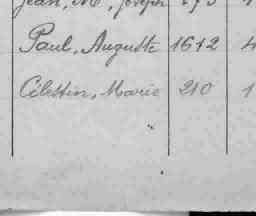 Jean, M, Joseph
Paul, Auguste 1612 4
Célestin, Marie 210 1